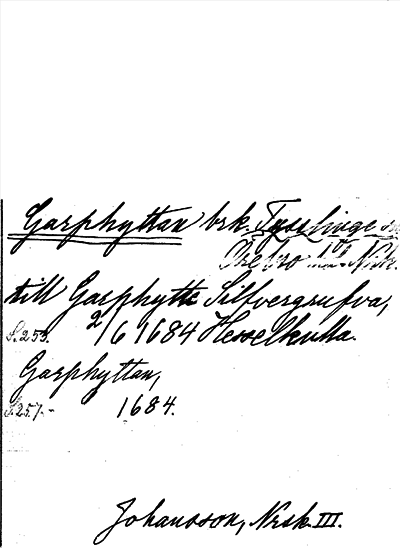 Garphyttan brk. Tysslinge sn
Örebro lfs. Nrk.
till Garphytte Silfvergrufva,
S. 253. 2/6 1684 Hesselkulla.
Garphyttan,
S. 257. 1684.
Johansson, Nrsk. III.